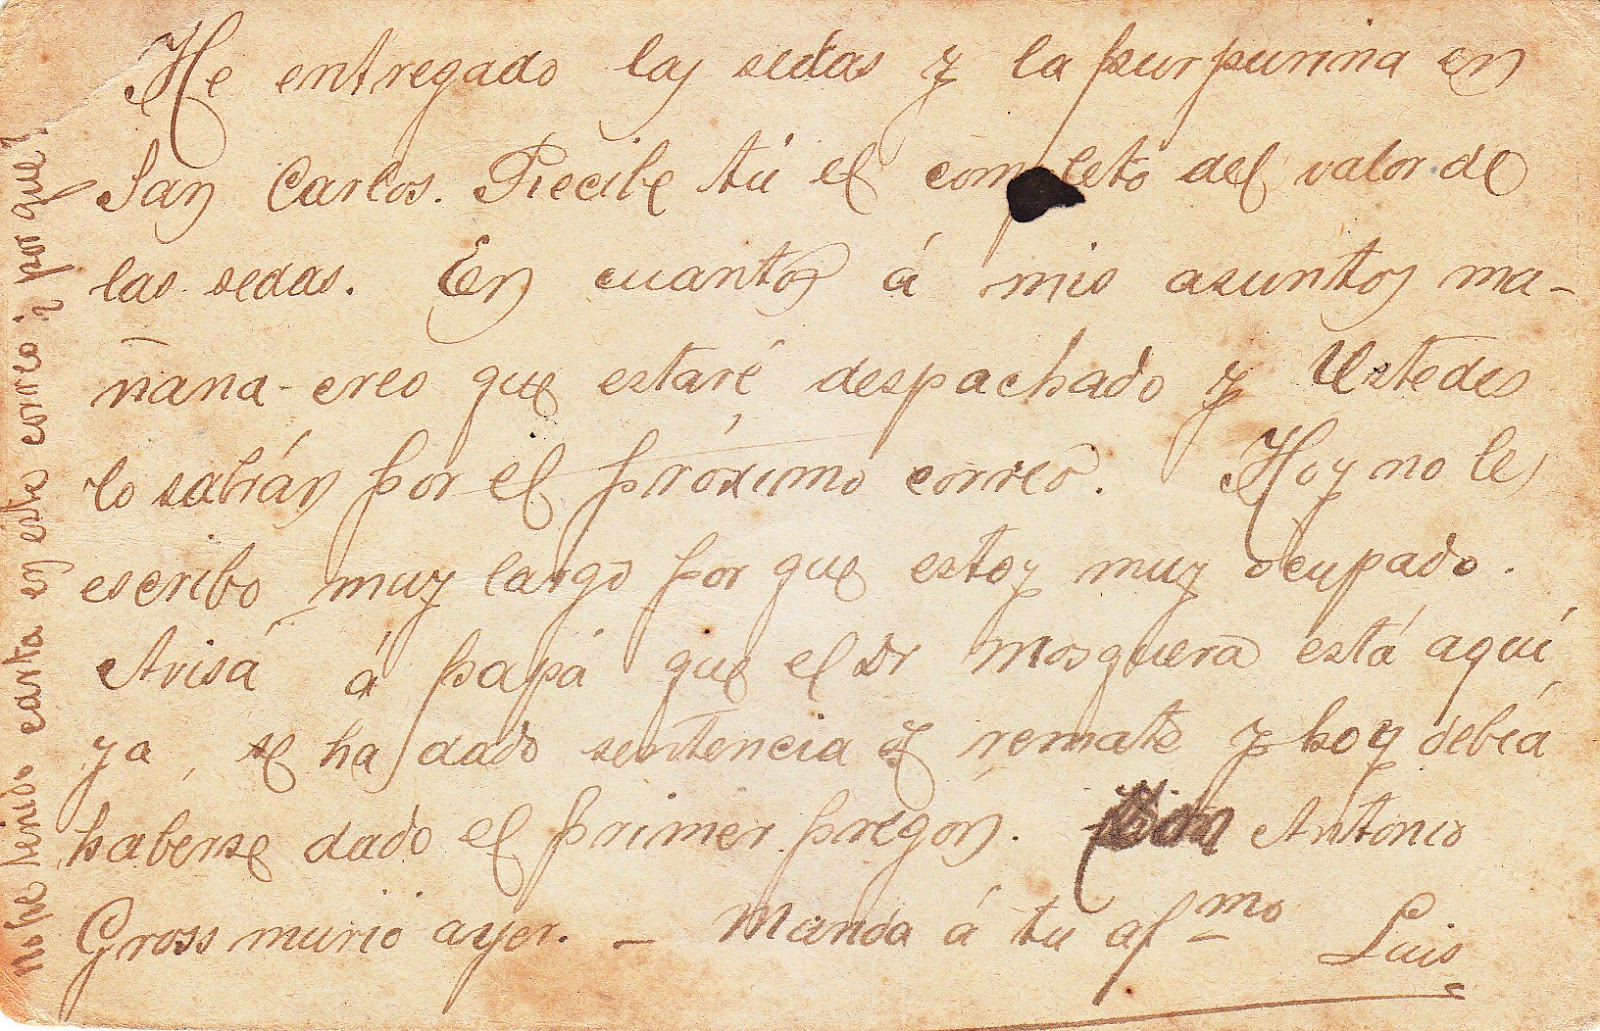 He entregado las sedas y la purpurina en
San Carlos. Recibe tú el completo del valor de
las sedas. En cuantos á mis asuntos ma-
ñana creo que estaré despachado y Ustedes
lo sabrán por el próximo correo. Hoy no les
escribo muy largo por que estoy muy ocupado.
Avisá á papá que el Dr Mosquera está aquí,
ya, se ha dado sentencia y remate y hoy debiá
haberse dado el primer pregón. Don Antonio
Gross murió ayer. - Manda á tu afmo Luis
No he tenido carta en este correo ¿por que?